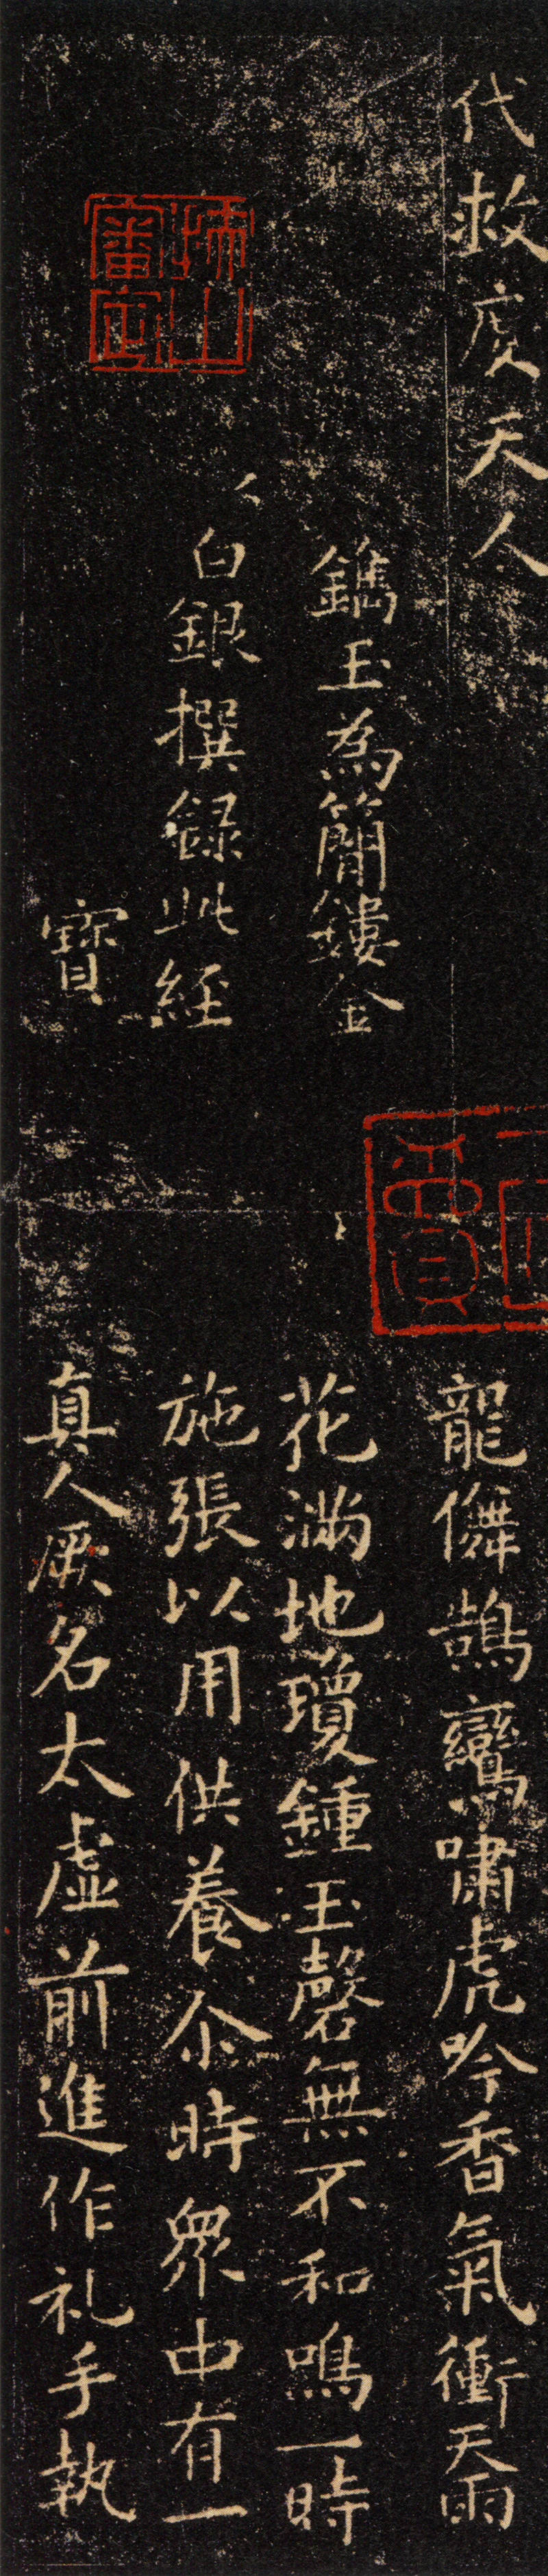 代救度天人
鐫玉為簡鏤金
白銀撰録此經
寶
龍儛鵠鸞嘯虎吟香氣衝天雨
花滿地瓊鍾玉磬無不和鳴一時
施張以用供養尒時眾中有一
真人厥名太虛前進作礼手執
審定